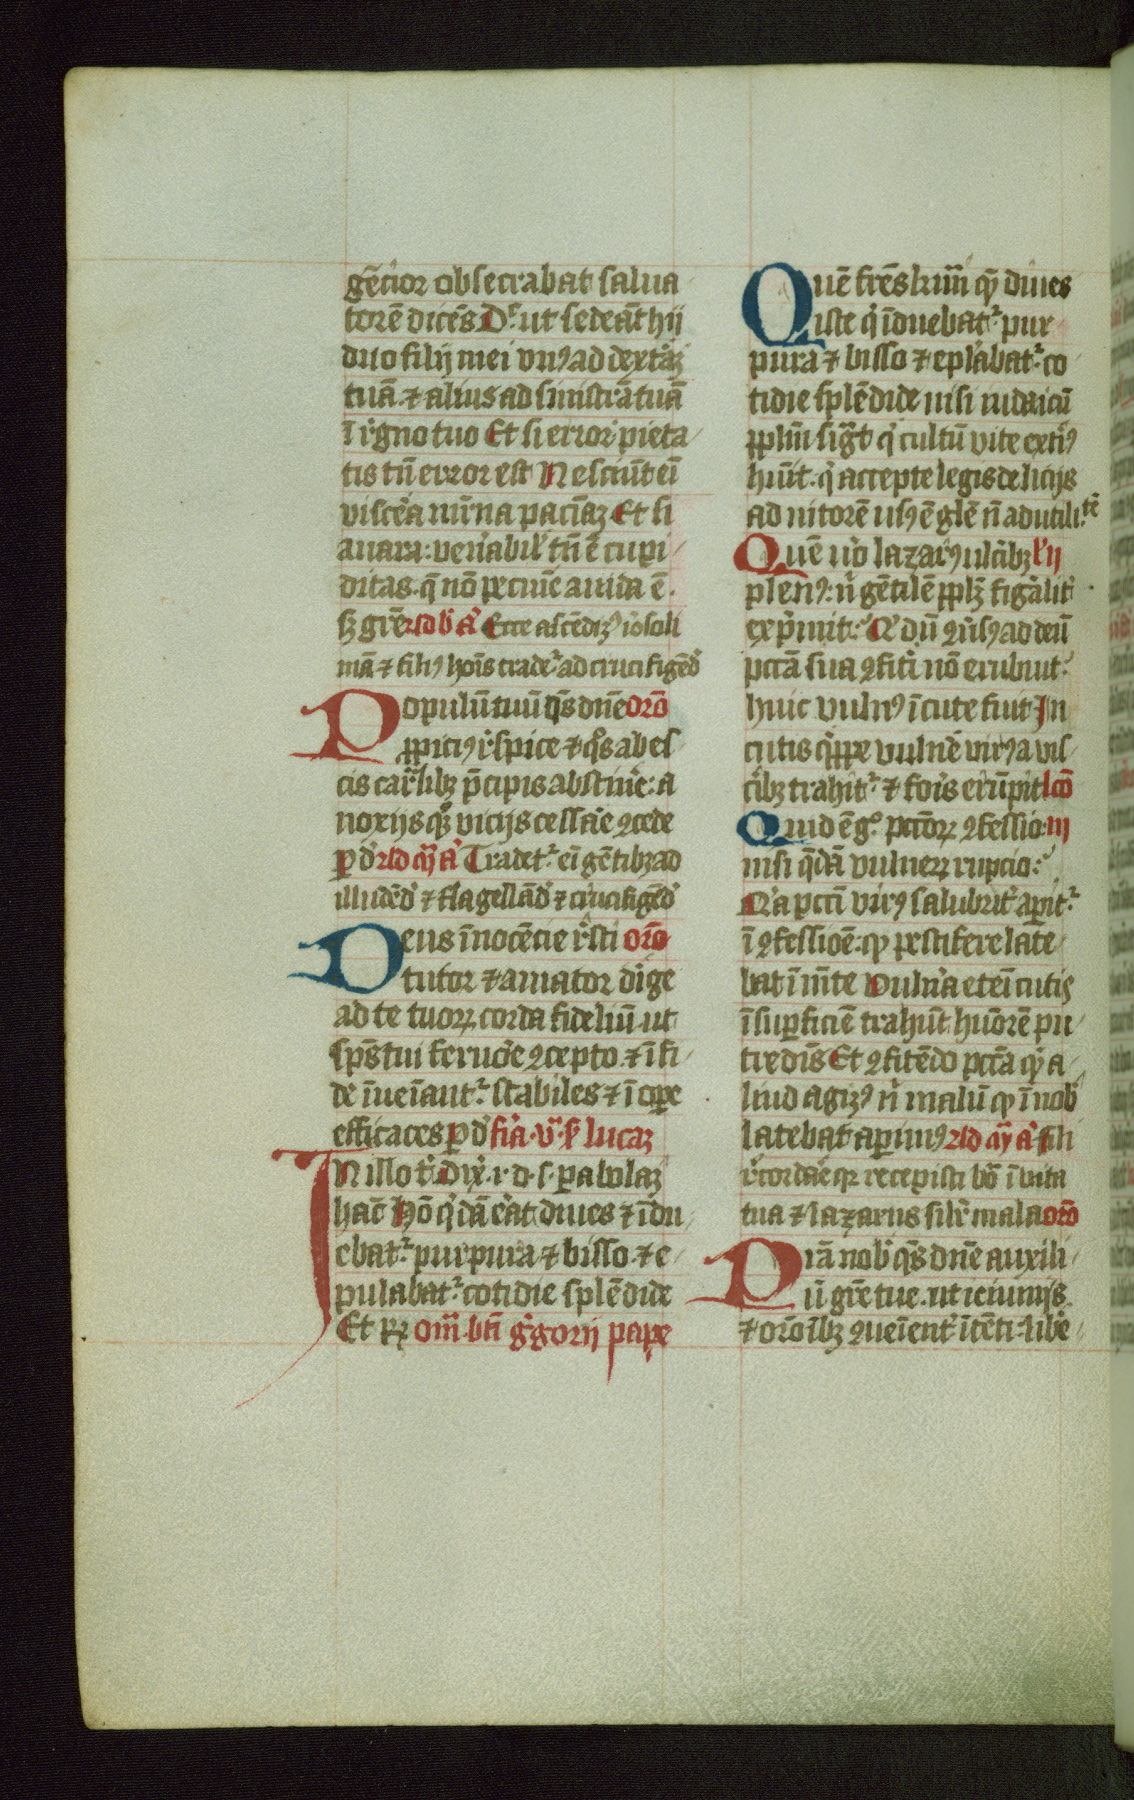 gēcior obsecrabat salua
torē dicēs Dʼ ut sedeāt hij
duo filij mei vnꝰ ad dextāʒ
tuā ⁊ alius ad sinistrā tuā
ī rͥgno tuo Et si error pieta
tis tn̄ error est Nesciūt eī
viscēa mr̄na paciāʒ Et si
auara: venābilʼ tn̄ ē cupi
ditas. q̄ nō pecunē auida ē.
sꝫ grē Ecce ascēdimꝰ iʼosoli
mā ⁊ filiꝰ hoīs tradeʳ ad crucifigēdʼ
Populū tuū q̄s dn̄e orō
ꝓpiciꝰ rͥspice ⁊ qͦs ab es
cis carͣlibꝫ p̄cipis abstinēˀ: a
noxijs qͦꝫ vicijs cessāˀe ꝯcede
ꝑ dʼ ald qͥ aʼ Tradetʳ eī gētibꝫ ad
illudēdʼ ⁊ flagellādʼ ⁊ crucifigēdʼ
Deus īnocēcie rͥsti orō
tutor ⁊ amator dīge
ad te tuoꝝ corda fideliū ut
spūs tui feruoͥe ꝯcepto. ⁊ ī fi
de īueīantʳ stabiles ⁊ ī oꝑe
efficaces ꝑ dʼ fiʼa. vͣ. lucaʒ
IN illo tʼ Dix̄. i. d. s. ꝑabolaʒ
hāc Hō qͥdā eʼat diues ⁊ īdu
ebatʳ purpura ⁊ bisso. ⁊ e
pulabatʳ cotidie splēdide
Et rꝝ om̄. bt̄i gͥgorij pape
Quē fr̄es kīmī qͥ diues
iste qͥ īduebatʳ pur
pura ⁊ bisso ⁊ eplābatʳ co
tidie splēdide nisi iudaicū
ꝓplm̄ sigͣt qͥ cultū vite extiͥꝰ
hūit. qͥ accepte legis delicijs
ad nitorē usꝰ ē glē n̄ ad utili.tē
Quē uͦo lazarꝰ ulcībꝫ lʼ ij
plenꝰ: nͥ gētilē ꝓplꝫ figālitʼ
exp̄mit. Qͥ dū ꝯuͥsꝰ ad deū
pctā sua ꝯfitͥi nō erubuit:
huic vulnꝰ ī cute fuit In
cutis qͥppe vulnē virꝰ a vis
cībꝫ trahitʳ ⁊ foīs erūpit lcō
Quid ē gͦ pctōꝝ ꝯfessio iij
nisi q̄dā vulneꝝ rupcio:
Qʼa pcti virꝰ salubritʼ aꝑitʳ
ī ꝯfessiōē: qͥ pestifere late
bat ī mēte Vulnʼa eteī cutis
ī suꝑficiē trahūt huōrē pu
tredīs Et ꝯfitēdo pctā qͥ a
liud agimꝰ nͥ malū qͥ ī nobʼ
latebat aꝑimꝰ ald qͥ aʼ Fili
rͥcordāˀe qꝛ recepisti boʼ ī vita
tua ⁊ lazarus silʼr mala orō
Piā nobʼ q̄s dn̄e auxili
ū grē tue. ut ieiunijs
⁊ orōībꝫ ꝯueīentʼ ītēti: libē